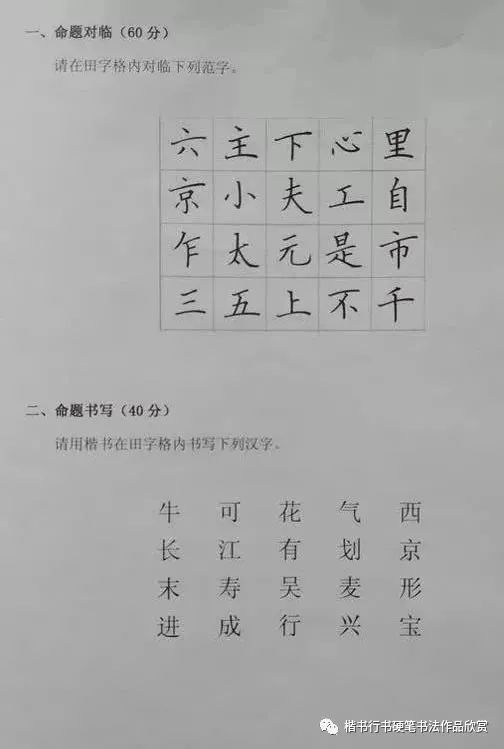 一、命题对临（60 分）
请在田字格内对临下列范字。
六 主 下 心 里
京 小 夫 工 自
乍 太 元 是 市
三 五 上 不 千
二、命题书写（40 分）
请用楷书在田字格内书写下列汉字。
牛 可 花 气 西
长 江 有 划 京
末 寿 吴 麦 形
进 成 行 兴 宝
楷书行书硬笔书法作品欣赏